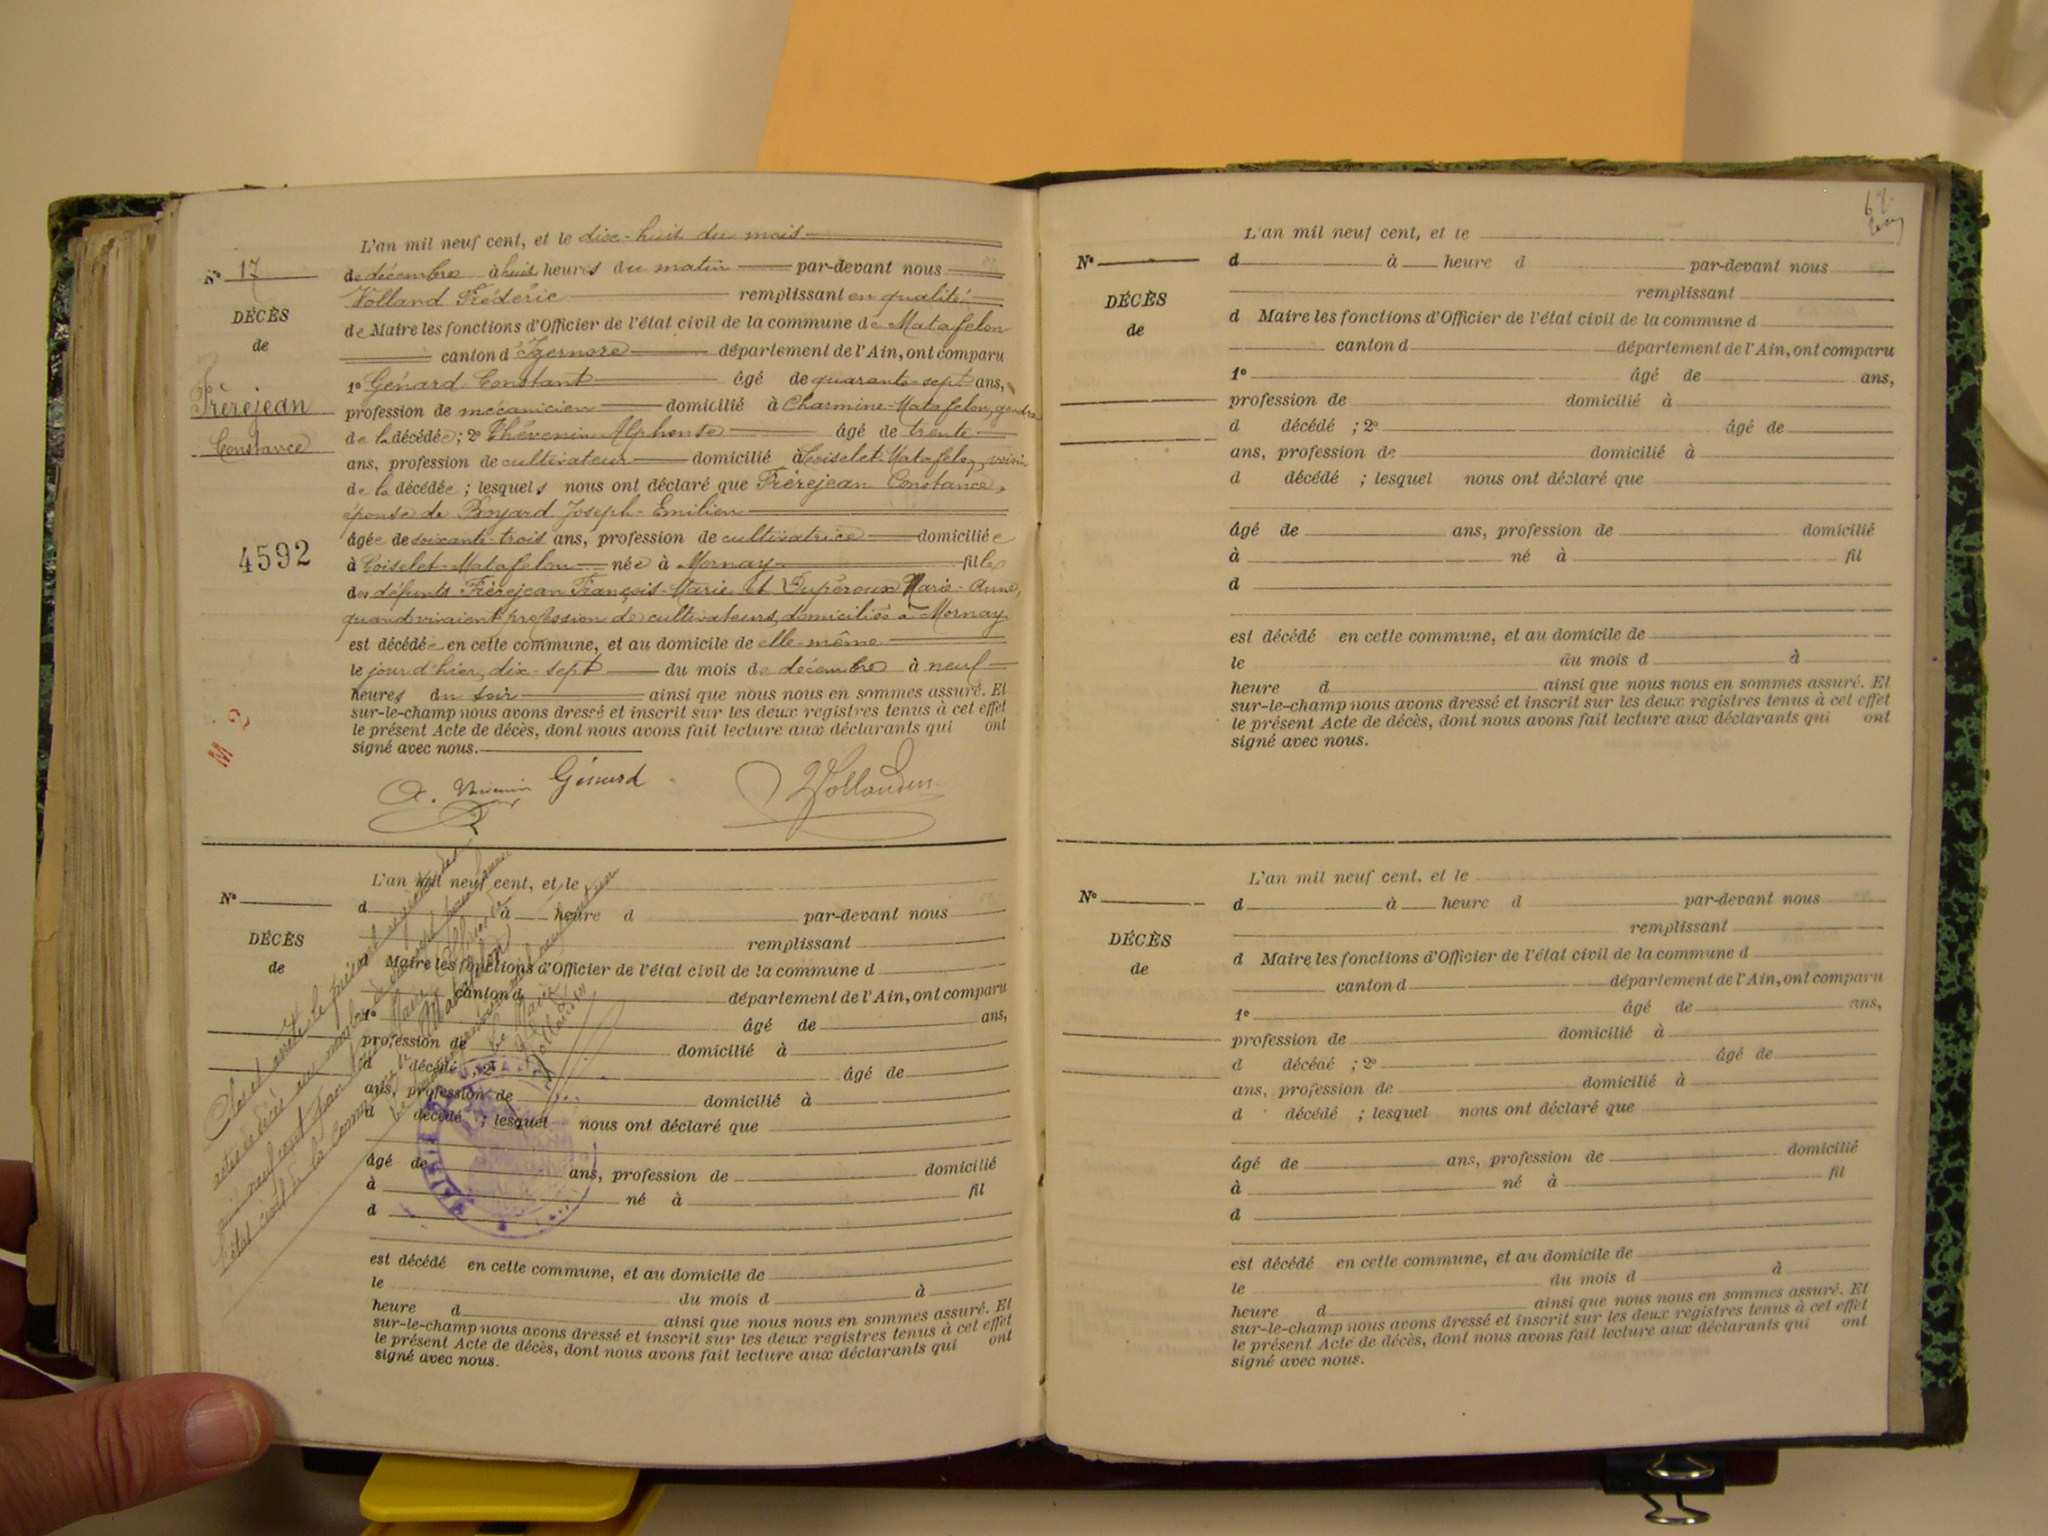 L'an mil neuf cent, et le dix-huit du mois
No 17
de décembre à huit heures du matin par-devant nous
Volland Frédéric remplissant en qualité
DÉCÈS
de Maire les fonctions d'Officier de l'état civil de la commune de Matafelon
de
canton d'Izernore département de l'Ain, ont comparu
1o Génard Constant âgé de quarante-sept ans,
Frèrejean
profession de mécanicien domicilié à Charmine-Matafelon, gendre
Constance
de la décédée ; 2o Thévenin Alphonse âgé de trente
ans, profession de cultivateur domicilié à Coiselet-Matafelon, voisin
de la décédée ; lesquels nous ont déclaré que Frèrejean Constance,
épouse de Joseph-Emilien
âgée de soixante-trois ans, profession de cultivatrice domiciliée
4592
à Coiselet-Matafelon née à Mornay fille
des défunts Frèrejean François-Marie et Dupéroux Marie-Anne,
quand vivaient profession de cultivateurs, domiciliés à Mornay
est décédée en cette commune, et au domicile de elle-même
le jour d'hier, dix-sept du mois de décembre à neuf
heures du soir ainsi que nous nous en sommes assuré. Et
sur-le-champ nous avons dressé et inscrit sur les deux registres tenus à cet effet
le présent Acte de décès, dont nous avons fait lecture aux déclarants qui ont
signé avec nous.
M 2
Génard
L'an mil neuf cent, et le
No
d à heure d par-devant nous
remplissant
DÉCÈS
de
d Maire les fonctions d'Officier de l'état civil de la commune d
canton d département de l'Ain, ont comparu
1o âgé de ans,
profession de domicilié à
d décédé ; 2o âgé de
ans, profession de domicilié à
d décédé ; lesquel nous ont déclaré que
âgé de ans, profession de domicilié
à né à fil
d
est décédé en cette commune, et au domicile de
le du mois d à
heure d ainsi que nous nous en sommes assuré. Et
sur-le-champ nous avons dressé et inscrit sur les deux registres tenus à cet effet
le présent Acte de décès, dont nous avons fait lecture aux déclarants qui ont
signé avec nous.
Clos et arrêté le présent registre des
actes de décès au nombre de
Le Maire
L'an mil neuf cent, et le
No
d à heure d par-devant nous
remplissant
DÉCÈS
de
d Maire les fonctions d'Officier de l'état civil de la commune d
canton d département de l'Ain, ont comparu
1o âgé de ans,
profession de domicilié à
d décédé ; 2o âgé de
ans, profession de domicilié à
d décédé ; lesquel nous ont déclaré que
âgé de ans, profession de domicilié
à né à fil
d
est décédé en cette commune, et au domicile de
le du mois d à
heure d ainsi que nous nous en sommes assuré. Et
sur-le-champ nous avons dressé et inscrit sur les deux registres tenus à cet effet
le présent Acte de décès, dont nous avons fait lecture aux déclarants qui ont
signé avec nous.
L'an mil neuf cent, et le
No
d à heure d par-devant nous
remplissant
DÉCÈS
de
d Maire les fonctions d'Officier de l'état civil de la commune d
canton d département de l'Ain, ont comparu
1o âgé de ans,
profession de domicilié à
d décédé ; 2o âgé de
ans, profession de domicilié à
d décédé ; lesquel nous ont déclaré que
âgé de ans, profession de domicilié
à né à fil
d
est décédé en cette commune, et au domicile de
le du mois d à
heure d ainsi que nous nous en sommes assuré. Et
sur-le-champ nous avons dressé et inscrit sur les deux registres tenus à cet effet
le présent Acte de décès, dont nous avons fait lecture aux déclarants qui ont
signé avec nous.